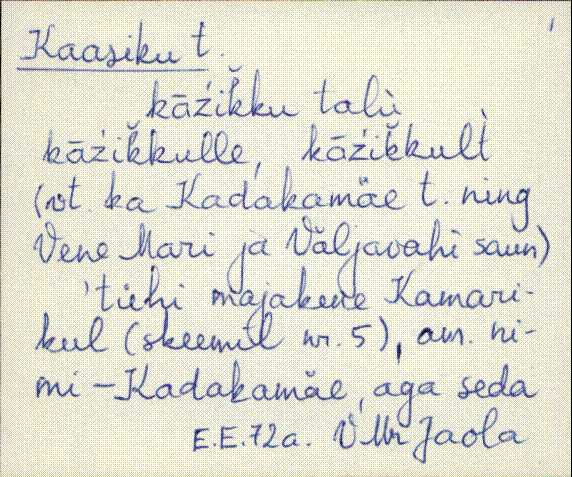 1
Kaasiku t.
kāźik̆ku talù
kāźik̆kulle, kāźik̆kult̀
(vt. ka Kadakamäe t. ning
Vene Mari ja Väljavahi saun)
'tühi majakene Kamari-
kul (skeemil nr. 5), am. ni-
mi – Kadakamäe, aga seda
E.E. 72a. VMr Jaola